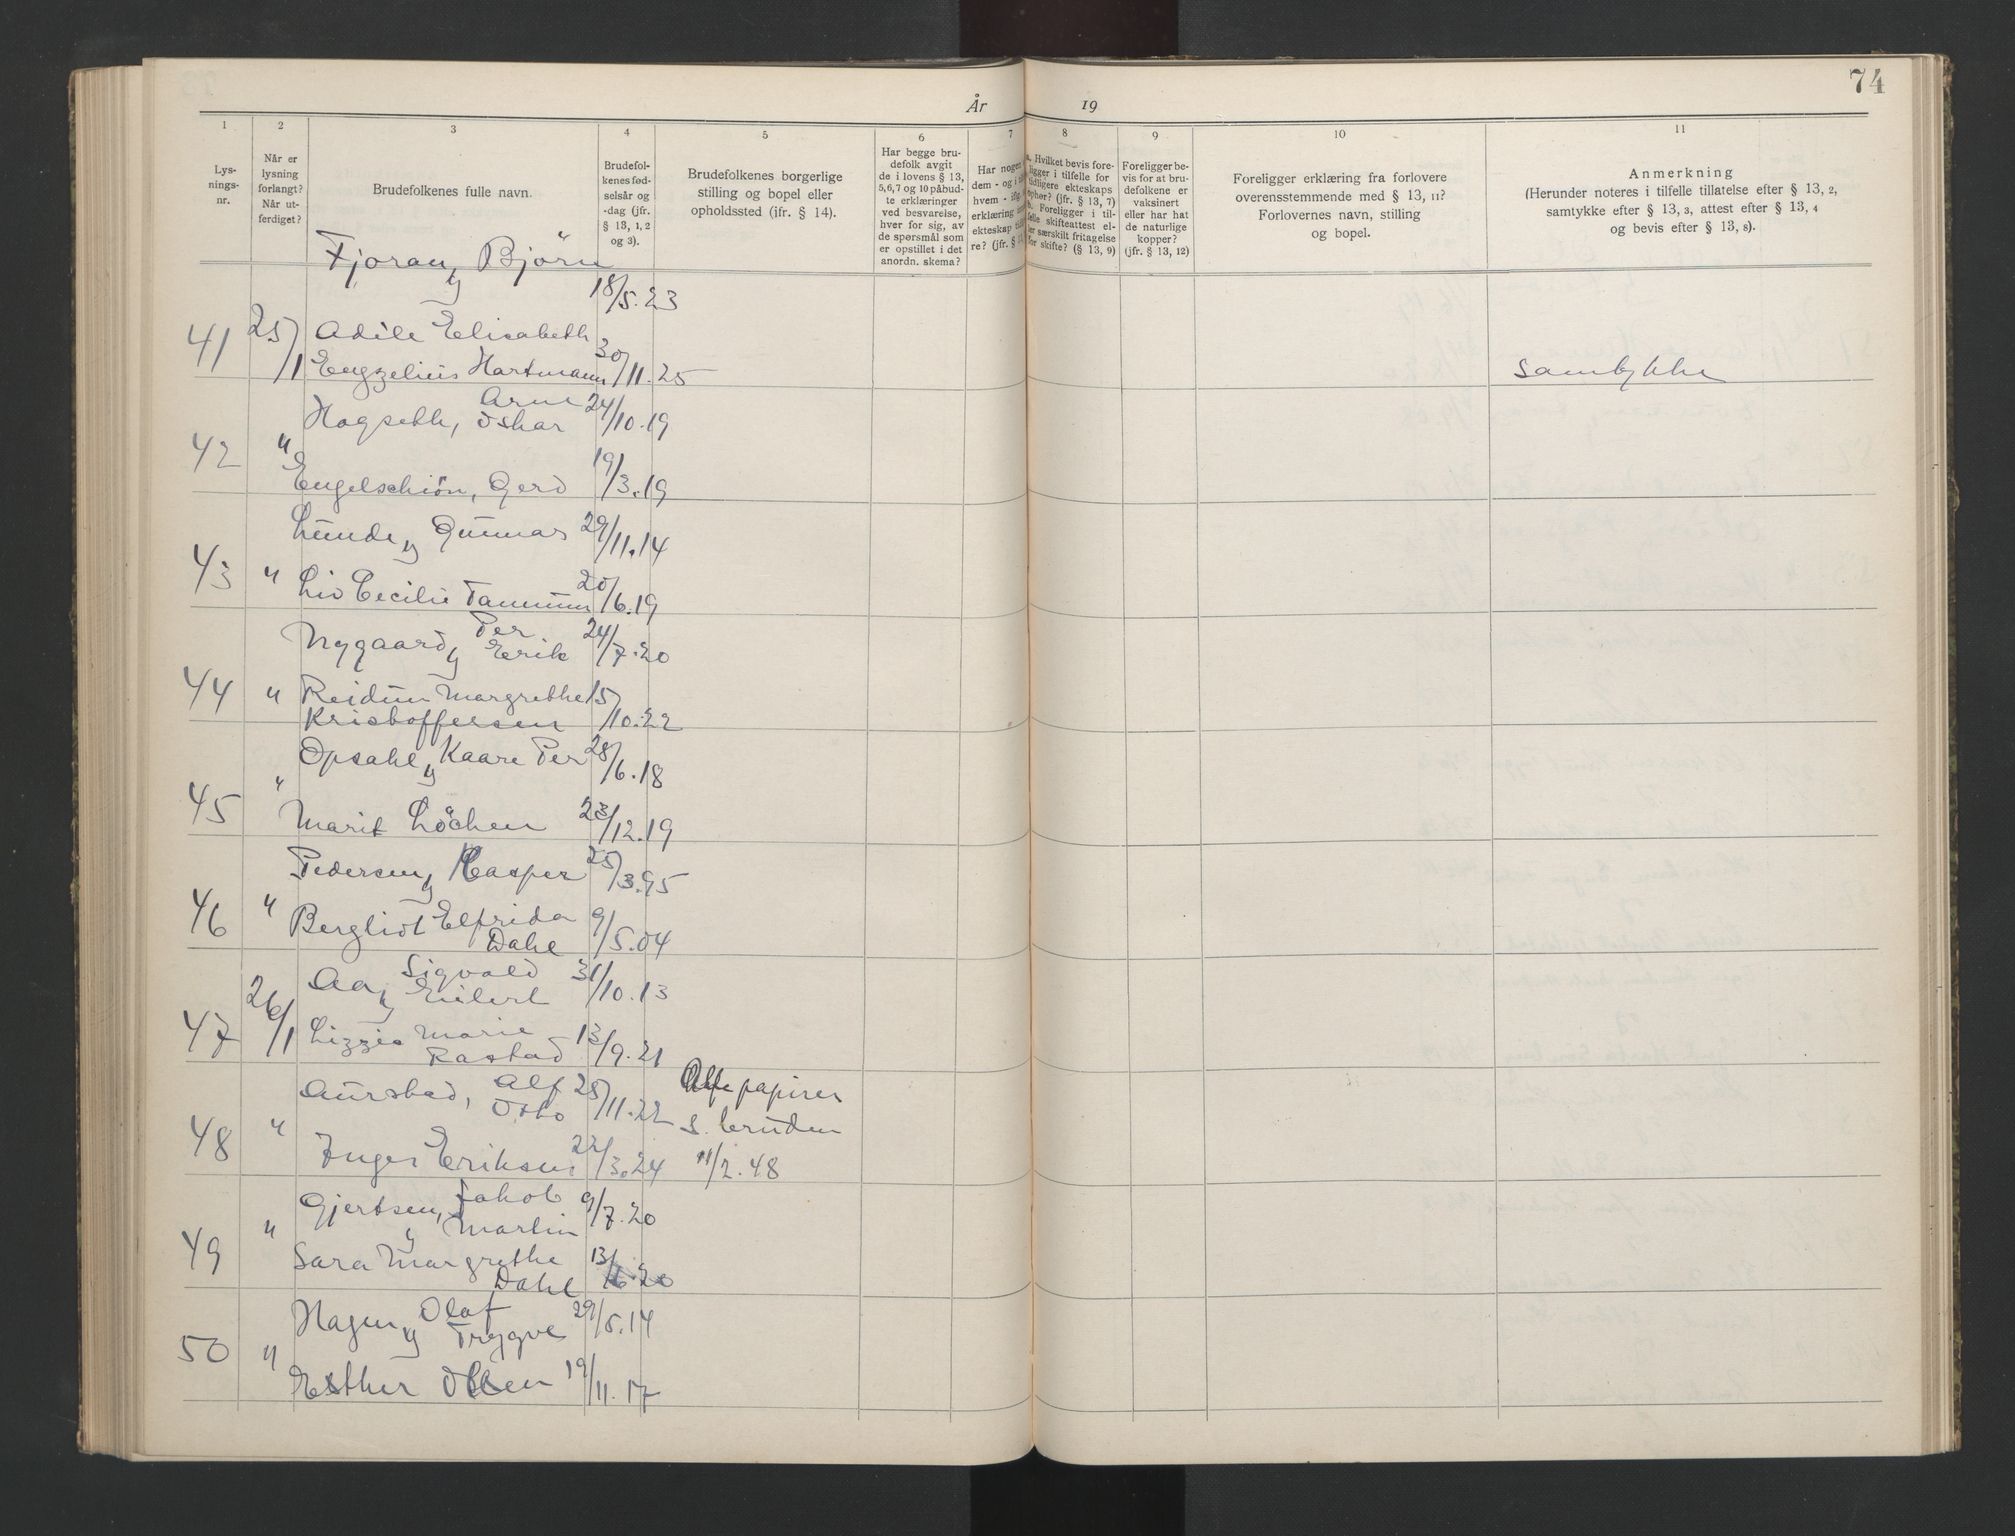 74
År 19
1 2 3 4 5 6 7 8 9 10 11
Lys-
nings-
nr.
Når er
lysning
forlangt?
Når ut-
ferdiget?
Brudefolkenes fulle navn.
Brudefol-
kenes fød-
selsår og
-dag (jfr.
§ 13, 1, 2
og 3).
Brudefolkenes borgerlige
stilling og bopel eller
opholdssted (ifr. § 14).
Har begge bru-
defolk avgit
de i lovens § 13,
5,6,7 og 10 påbud-
te erklæringer
ved besvarelse,
hver for sig, av
de spørsmål som
er opstillet i det
anordn. skema?
Har nogen
dem - og i
hvem - iflg.
erklæring
ekteskap
re? (jfr. §
a. Hvilket bevis fore-
ligger i tilfelle for
tidligere ekteskaps
opher? (jfr. § 13, 7)
b. Foreligger i til-
felle skifteattest el-
ler særskilt fritagelse
for skifte? (§ 13, 9)
Foreligger be-
vis for at bru-
defolkene er
vaksinert
eller har hat
de naturlige
kopper?
(jfr. § 13, 12)
Foreligger erklæring fra forlovere
overensstemmende med § 13, 11?
Forlovernes navn, stilling
og bopel.
Anmerkning
(Herunder noteres i tilfelle tillatelse efter § 13, 2,
samtykke efter § 13, 3, attest efter § 13, 4
og bevis efter § 13, 8).
Fjoran, Björn
18/5.23
41 25/1 Adile Elisabeth
Engzelius Hartmann 30/11.25 samtykke
Arne
Hogseth, Oskar 24/10.19
42 "
Engelschiön, Gerd 19/3.19
Lunde, Gunnar 29/11.14
43 " Liv Cecilie Tannum 20/6.19
Per
Nygaard, Erik 24/7.20
44 " Reidun Margrethe 15/10.22
Kristoffersen
Opsahl, Kaare Per 28/6.18
45 "
Marit Löchen 23/12.19
Pedersen, Casper 25/3.95
46 " Bergliot Elfrida 9/5.04
Dahl
Sigvald
Aa, Eilert 31/10.13
47 26/1 Lizzie Marie 13/9.21
Rastad
Aurstad, Alf 28/11.22
Otto
Alfe papirer
s. bruden
11/2.48
48 " Inger Eriksen 22/3.24
Gjertsen, Jakob 9/7.20
Martin
49 " Sara Margrethe 13/6.20
Dahl
Hagen, Olaf 29/5.14
Trygve
50 "
Esther Olsen 19/11.17